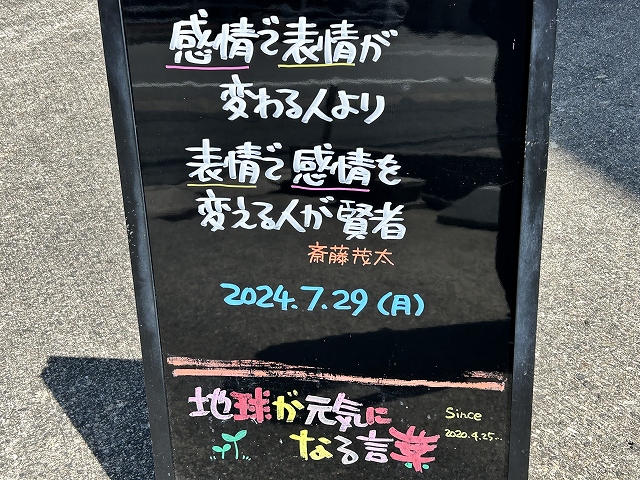 感情で表情が
変わる人より
表情で感情を
変える人が賢者
斎藤茂太
2024.7.29(月)
地球が元気に
なる言葉
Since
2020.4.25...